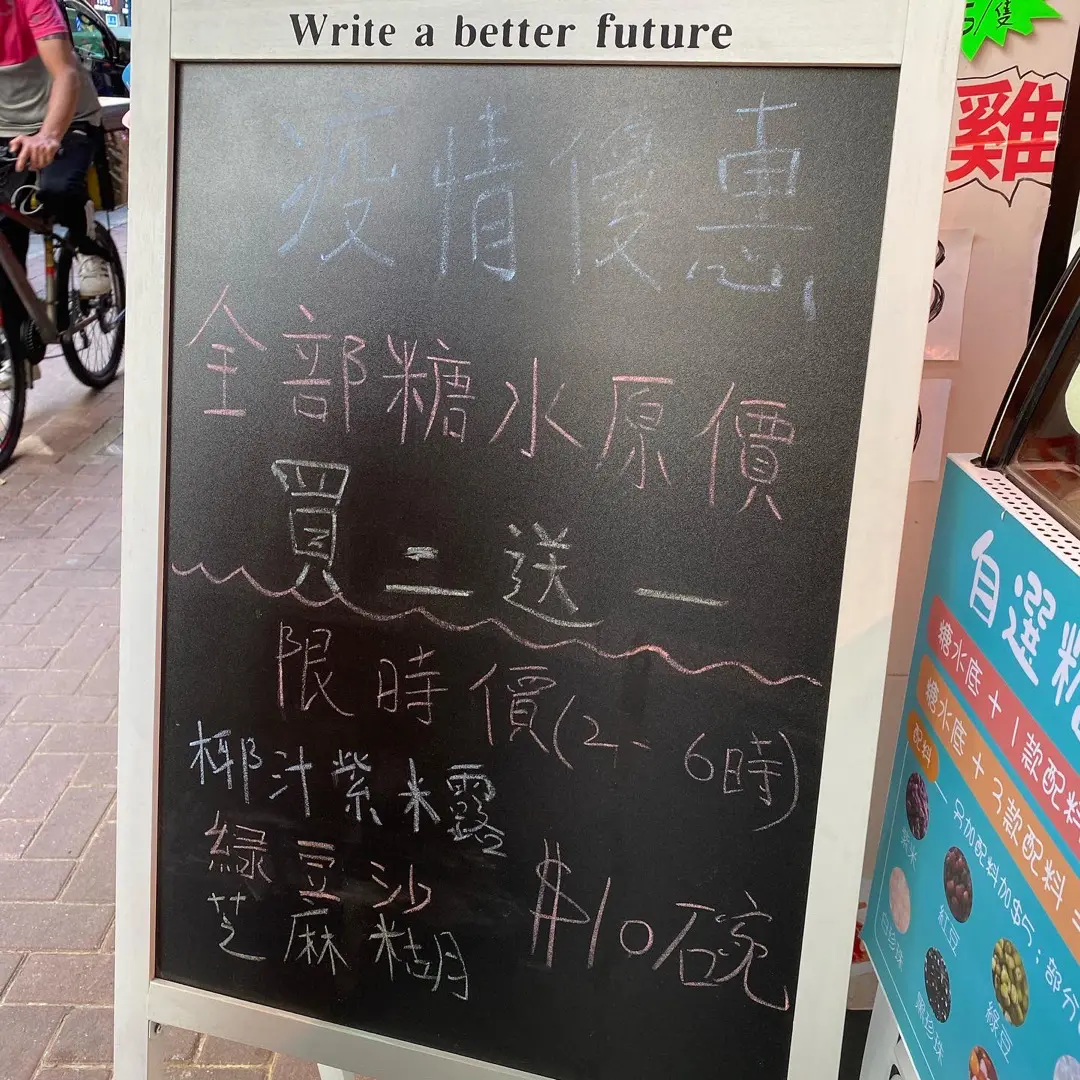 Write a better future
疫情優惠
全部糖水原價
買二送一
限時價(2-6時)
椰汁紫米露
綠豆沙
芝麻糊
$10碗
雞
自選糖
糖水底+1款配料
糖水底+3款配料
配料
另加配料加$7:部分
紫米
紅豆
綠豆
白珍珠
黑珍珠